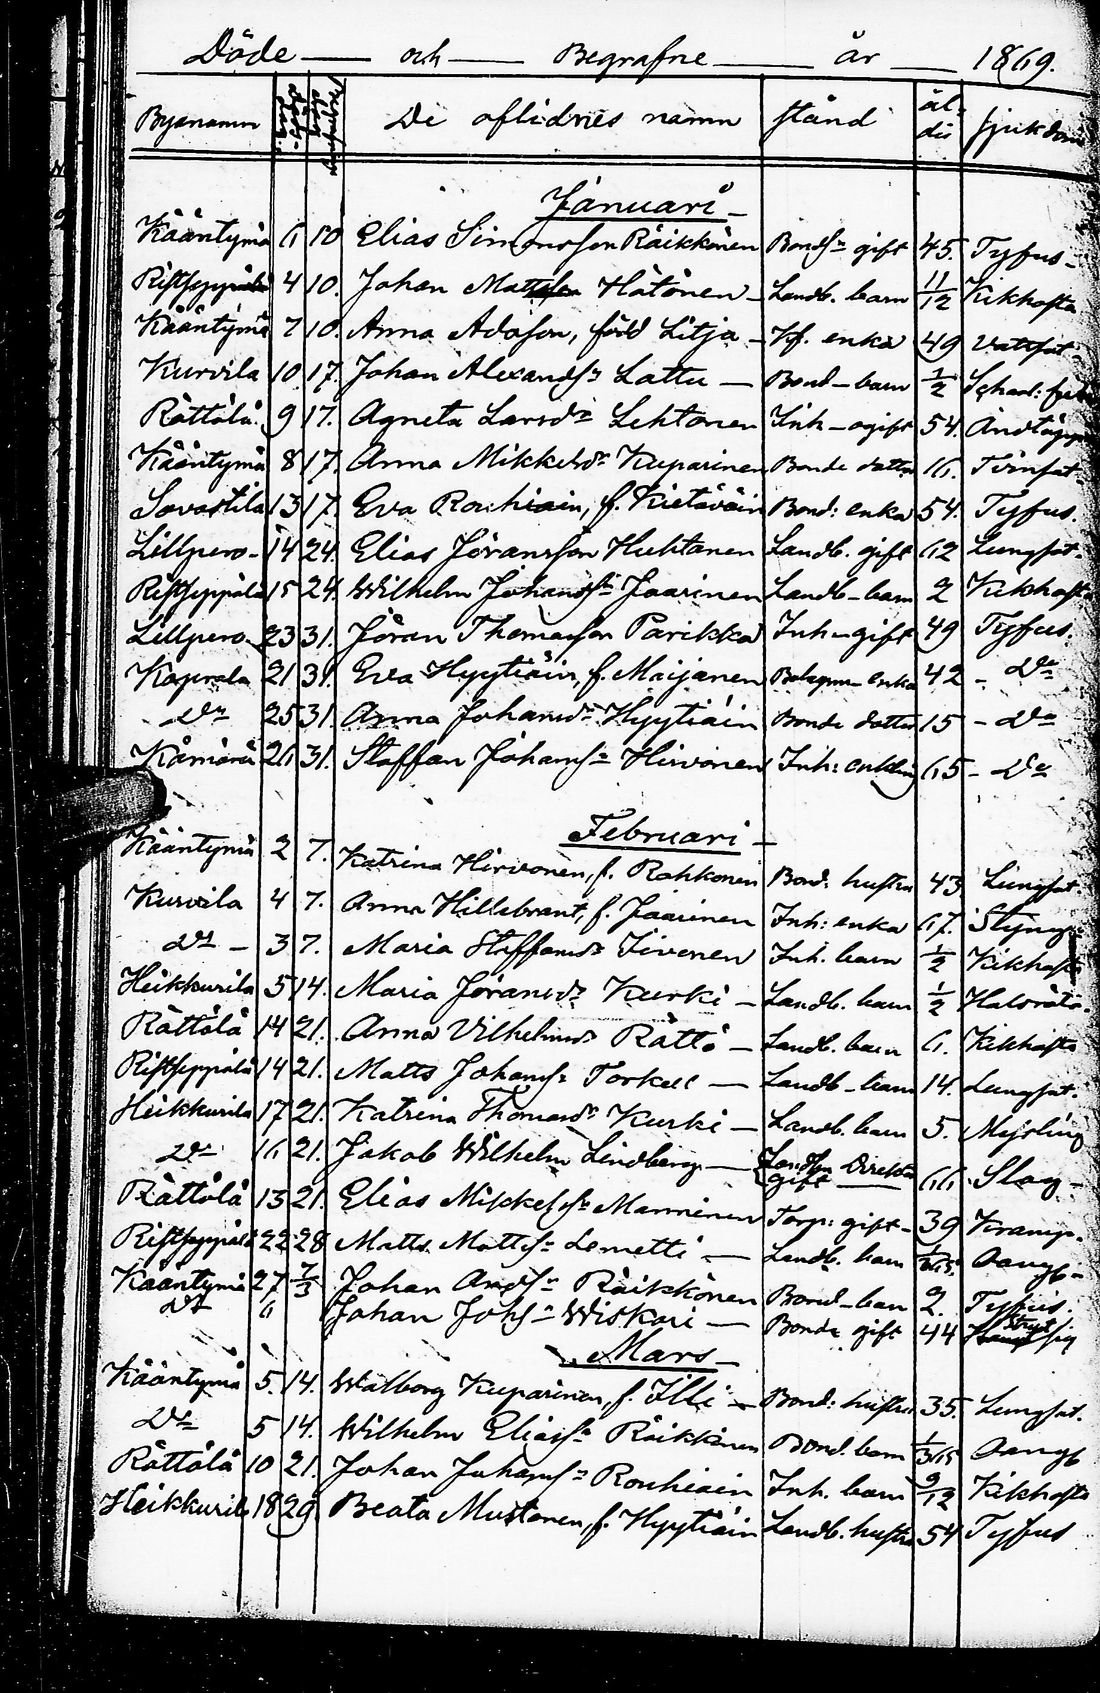 Döde — och — Begrafne — år — 1869.
Bynamn De aflidnes namn stånd ål-der sjukdom
Januari
Kääntymä 6 10 Elias Simonsson Räikkönen Bondsn gift 45. Tyfus
Ristseppälä 4 10. Johan Hätönen Landb. barn 11/12 Kikhosta
Kääntymä 7 10. Anna Adafson, född Litja Kf. enka 49
Kurvila 10 17. Johan Alexandsn Lattu Bond-barn 1/2
Rättölä 9 17. Agneta Larsdr Lehtonen Inh-ogift 54.
Kääntymä 8 17. Anna Mikkelsdr Kuparinen Bonde dotter 16. Tvinsot
Savastila 13 17. Eva Rouhiain, f. Kietäväin Bond: enka 54. Tyfus.
Lillpero 14 24. Elias Jöransson Huhtanen Landb. gift 62 Lungsot.
Ristseppälä 15 24. Wilhelm Johansn Jaarinen Landb-barn 2 Kikhosta
Lillpero 23 31. Jöran Thomasson Parikka Inh-gift 49 Tyfus.
Kaprala 21 31. Eva Hyytiäin, f. Maijanen enka 42 - Do
Do 25 31. Anna Johansdr Hyytiäin Bonde dotter 15 - Do
Kämärä 26 31. Staffan Johansn Hirvonen Inh: enkling 65 - Do
Februari
Kääntymä 2 7. Katrina Hirvonen, f. Rahkonen Bond: hustru 43 Lungsot.
Kurvila 4 7. Anna Hillebrant, f. Jaarinen Inh: enka 67. Styng
Do - 3 7. Maria Staffansdr Iivonen Inh. barn 1/2 Kikhosta
Heikkurila 5 14. Maria Jöransdr Kurki Landb. barn 1/2 Halsröta.
Rättölä 14 21. Anna Vilhelmsdr Rättö Landb. barn 6. Kikhosta
Ristseppälä 14 21. Matts Johansn Torkell Landb-barn 14. Lungsot.
Heikkurila 17 21. Katrina Thomasdr Kurki Landb. barn 5. Messling
Do 16 21. Jakob Wilhelm Lindberg gift 66. Slag
Rättölä 13 21. Elias Mikkelsn Manninen Torp: gift 39 Kramp.
Ristseppälä 22 28 Matts Mattsn Lemetti Landb. barn 1/365 Oangf
Kääntymä 27 7/3 Johan Andsn Räikkönen Bond-barn 2. Tyfus.
Do 6 Johan Johsn Wiskari Bonde gift 44
Mars
Kääntymä 5. 14. Walborg Kuparinen, f. Illi Bond: hustru 35. Lungsot.
Do 5 14. Wilhelm Eliassn Räikkönen Bond. barn 1/365 Oangf
Rättölä 10 21. Johan Johansn Rouhiain Inh. barn 9/12 Kikhosta
Heikkurila 18 29 Beata Mustonen, f. Hyytiäin Landb. hustru 54 Tyfus